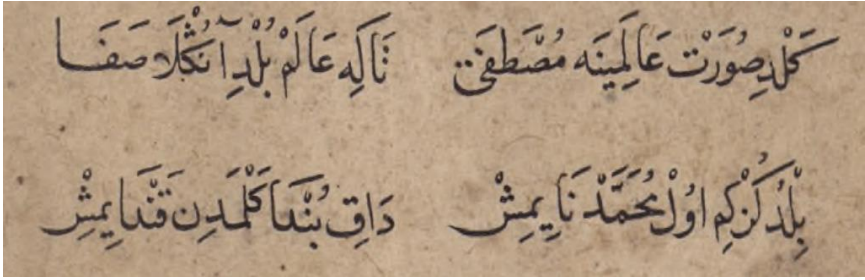 كَلْدِ صُورَتْ عَالَمِينَه مُصْطَفَى تَاكِه عَالَمْ بُلْدِ آنُكْلَا صَفَا
بِلْدُكُزْ كِمْ اوُلْ مُحَمَّدْ نَايِمِشْ دَاقِ بُنْدَا كَلْمَدِنْ قَنْدَايِمِشْ